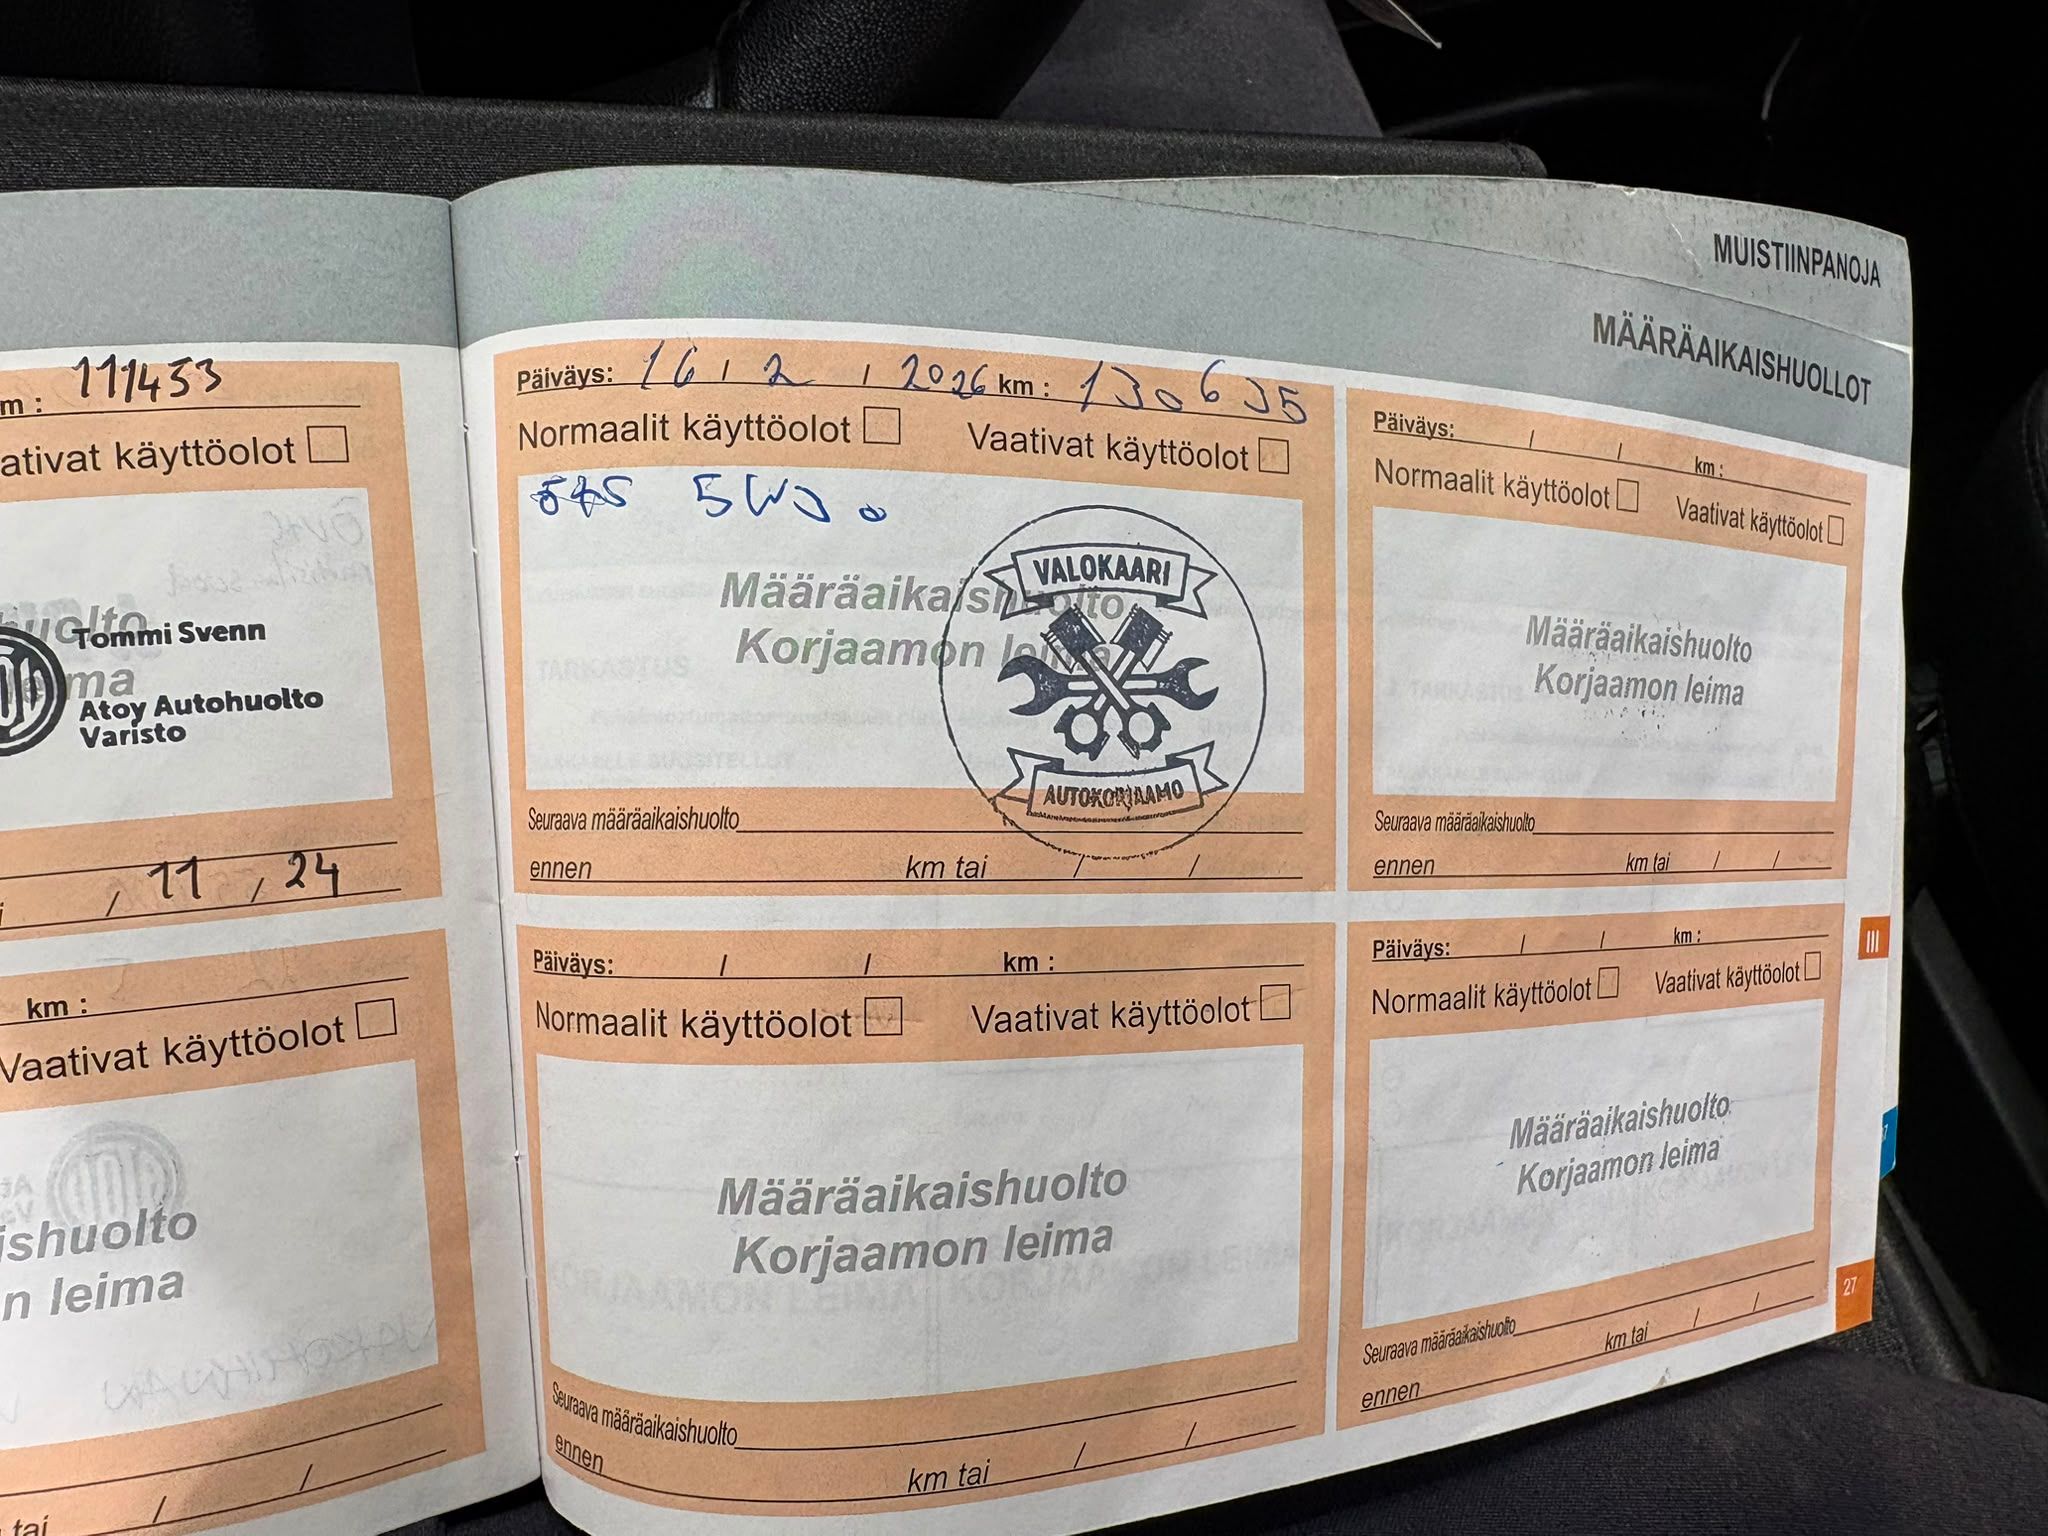 MUISTIINPANOJA
MÄÄRÄAIKAISHUOLLOT
m : 111453
ativat käyttöolot
huolto
eima
Tommi Svenn
Atoy Autohuolto
Varisto
/ 11 / 24
km :
Vaativat käyttöolot
ishuolto
n leima
tai / /
Päiväys: 16 / 2 / 2026 km : 130635
Normaalit käyttöolot Vaativat käyttöolot
5W30
Määräaikaishuolto
Korjaamon leima
VALOKAARI
AUTOKORJAAMO
Seuraava määräaikaishuolto
ennen km tai / /
Päiväys: / / km :
Normaalit käyttöolot Vaativat käyttöolot
Määräaikaishuolto
Korjaamon leima
Seuraava määräaikaishuolto
ennen km tai / /
Päiväys: / / km :
Normaalit käyttöolot Vaativat käyttöolot
Määräaikaishuolto
Korjaamon leima
Seuraava määräaikaishuolto
ennen km tai / /
Päiväys: / / km :
Normaalit käyttöolot Vaativat käyttöolot
Määräaikaishuolto
Korjaamon leima
Seuraava määräaikaishuolto
ennen km tai / /
III
27